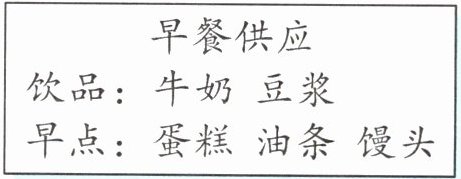 早餐供应
饮品：牛奶 豆浆
早点：蛋糕 油条 馒头